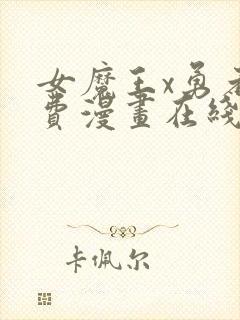 女魔王x勇者
費漫畫在綫
卡佩尔